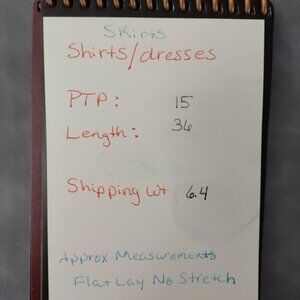 Skirts
Shirts/dresses
PTP: 15
Length: 36
Shipping wt 6.4
Approx Measurements
Flat Lay No Stretch